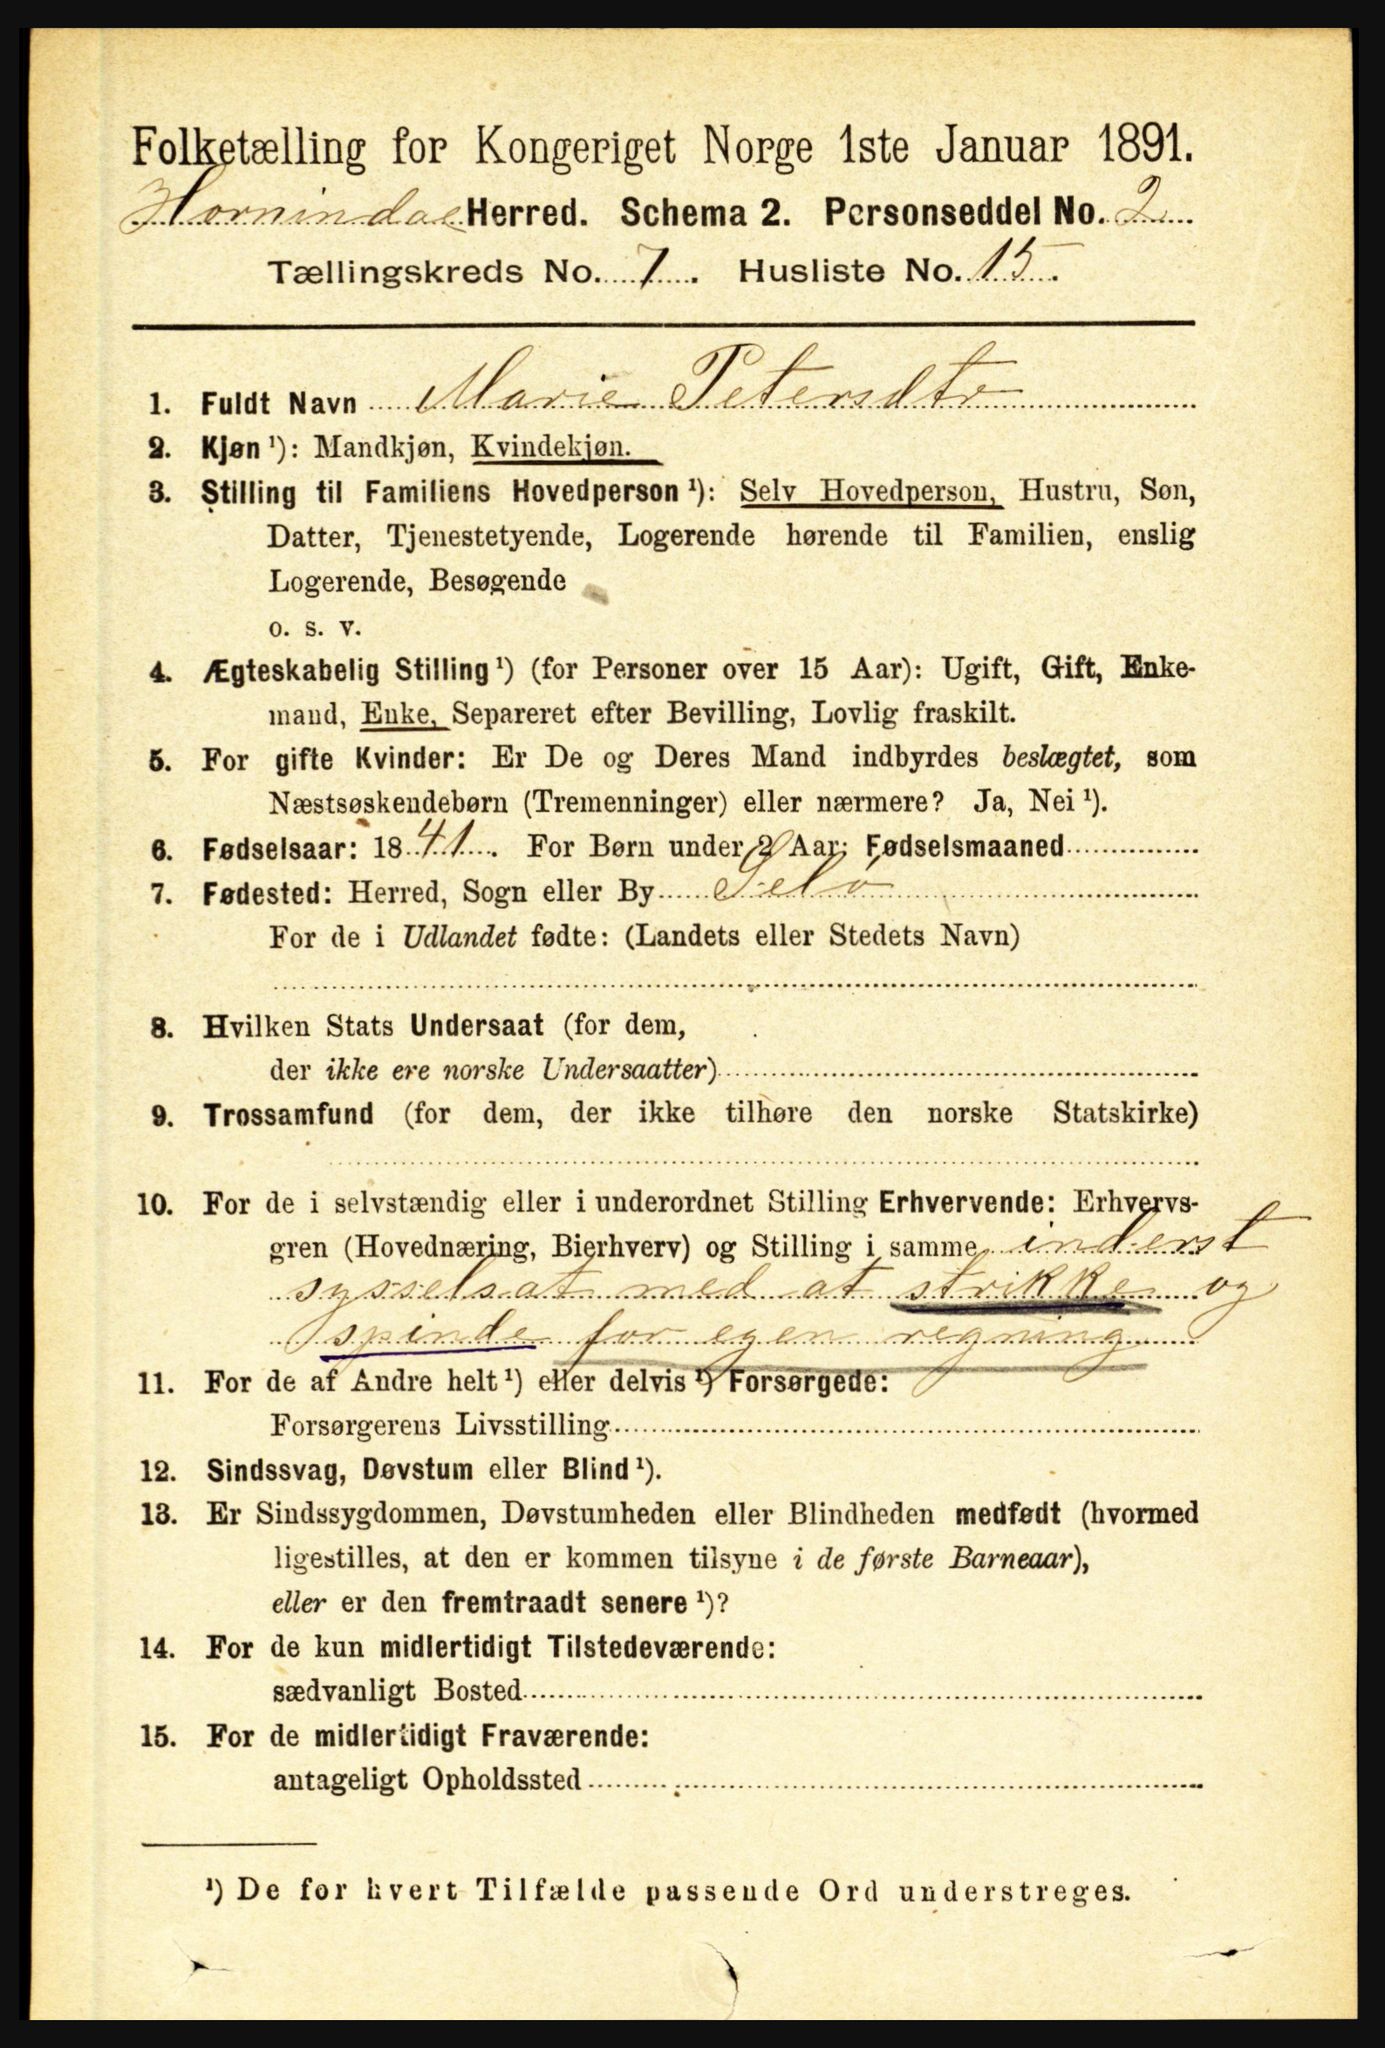 Folketælling for Kongeriget Norge 1ste Januar 1891.
Hornindal Herred. Schema 2. Personseddel No. 2
Tællingskreds No. 7. Husliste No. 15.
1. Fuldt Navn Marie Petersdtr
2. Kjøn ¹): Mandkjøn, Kvindekjøn.
3. Stilling til Familiens Hovedperson ¹): Selv Hovedperson, Hustru, Søn,
Datter, Tjenestetyende, Logerende hørende til Familien, enslig
Logerende, Besøgende
o. s. v.
4. Ægteskabelig Stilling ¹) (for Personer over 15 Aar): Ugift, Gift, Enke-
mand, Enke, Separeret efter Bevilling, Lovlig fraskilt.
5. For gifte Kvinder: Er De og Deres Mand indbyrdes beslægtet, som
Næstsøskendebørn (Tremenninger) eller nærmere? Ja, Nei ¹).
6. Fødselsaar: 1841. For Børn under 2 Aar: Fødselsmaaned
7. Fødested: Herred, Sogn eller By Selø
For de i Udlandet fødte: (Landets eller Stedets Navn)
8. Hvilken Stats Undersaat (for dem,
der ikke ere norske Undersaatter)
9. Trossamfund (for dem, der ikke tilhøre den norske Statskirke)
10. For de i selvstændig eller i underordnet Stilling Erhvervende: Erhvervs-
gren (Hovednæring, Bierhverv) og Stilling i samme inderst
sysselsat med at strikke og
spinde for egen regning
11. For de af Andre helt ¹) eller delvis ¹) Forsørgede:
Forsørgerens Livsstilling
12. Sindssvag, Døvstum eller Blind ¹).
13. Er Sindssygdommen, Døvstumheden eller Blindheden medfødt (hvormed
ligestilles, at den er kommen tilsyne i de første Barneaar),
eller er den fremtraadt senere ¹)?
14. For de kun midlertidigt Tilstedeværende:
sædvanligt Bosted
15. For de midlertidigt Fraværende:
antageligt Opholdssted
¹) De for hvert Tilfælde passende Ord understreges.